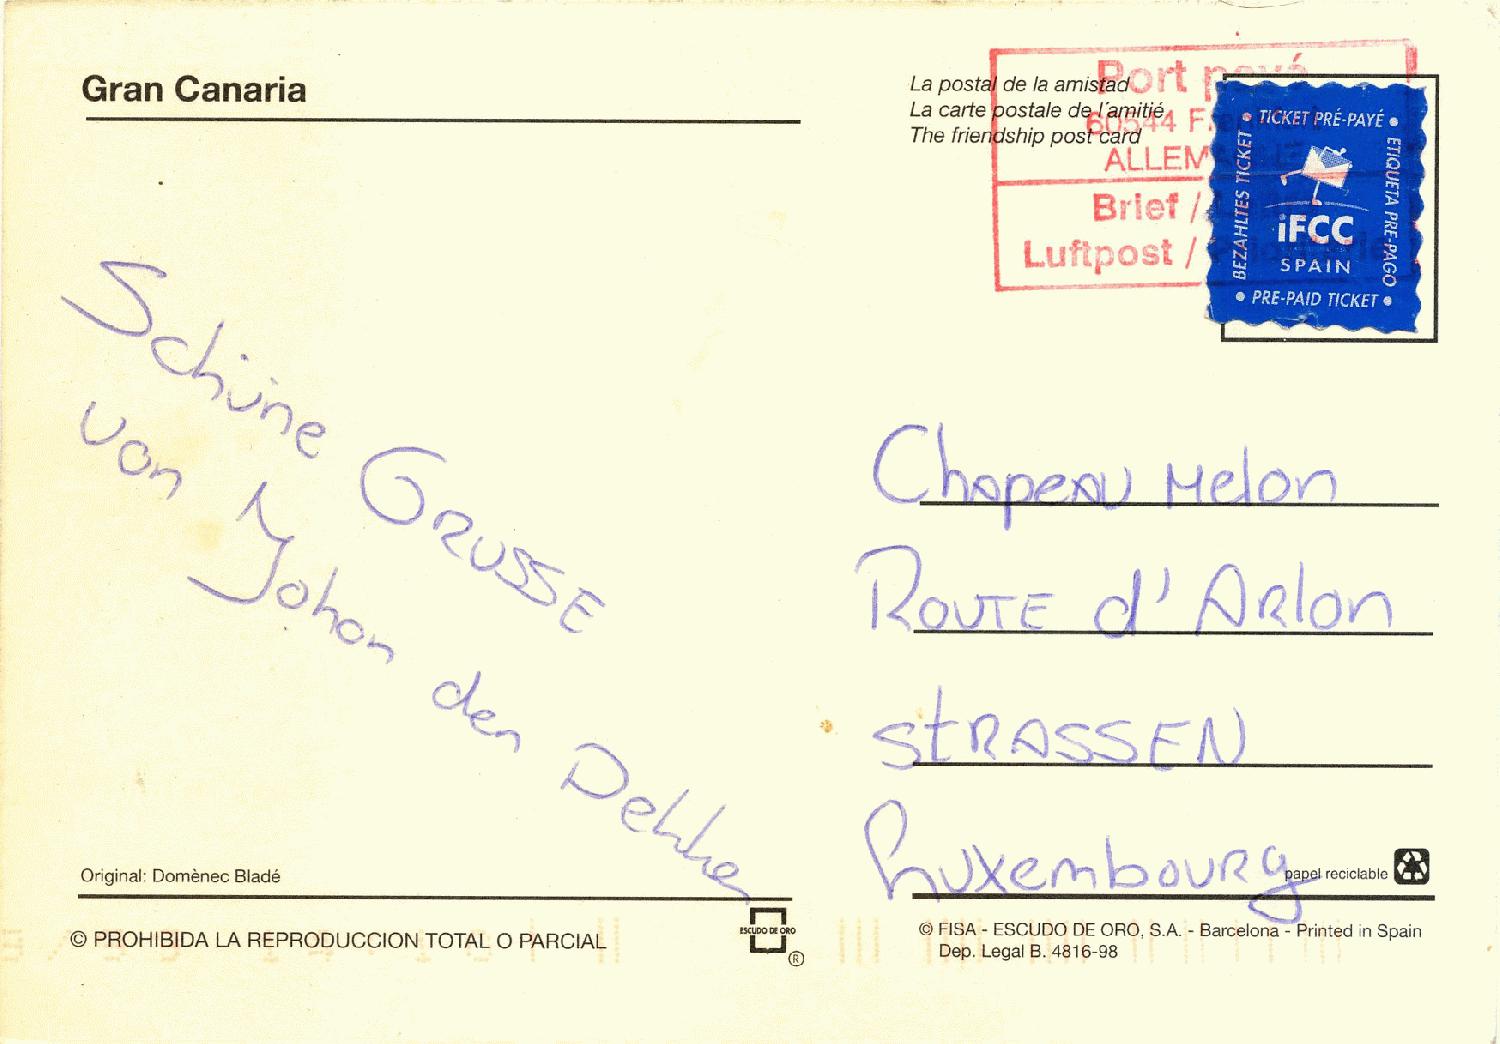 Gran Canaria
La postal de la amistad
La carte postale de l'amitié
The friendship post card
Port payé
60544 F
ALLEM
Brief /
Luftpost /
• TICKET PRÉ-PAYÉ •
BEZAHLTES TICKET
ETIQUETA PRE-PAGO
iFCC
SPAIN
• PRE-PAID TICKET •
Schüne GRUSSE
von Johan den Dekker
Chapeau Melon
ROUTE d'Arlon
StRASSEN
Luxembourg
Original: Domènec Bladé
papel reciclable
© PROHIBIDA LA REPRODUCCION TOTAL O PARCIAL
ESCUDO DE ORO
®
© FISA - ESCUDO DE ORO, S.A. - Barcelona - Printed in Spain
Dep. Legal B. 4816-98